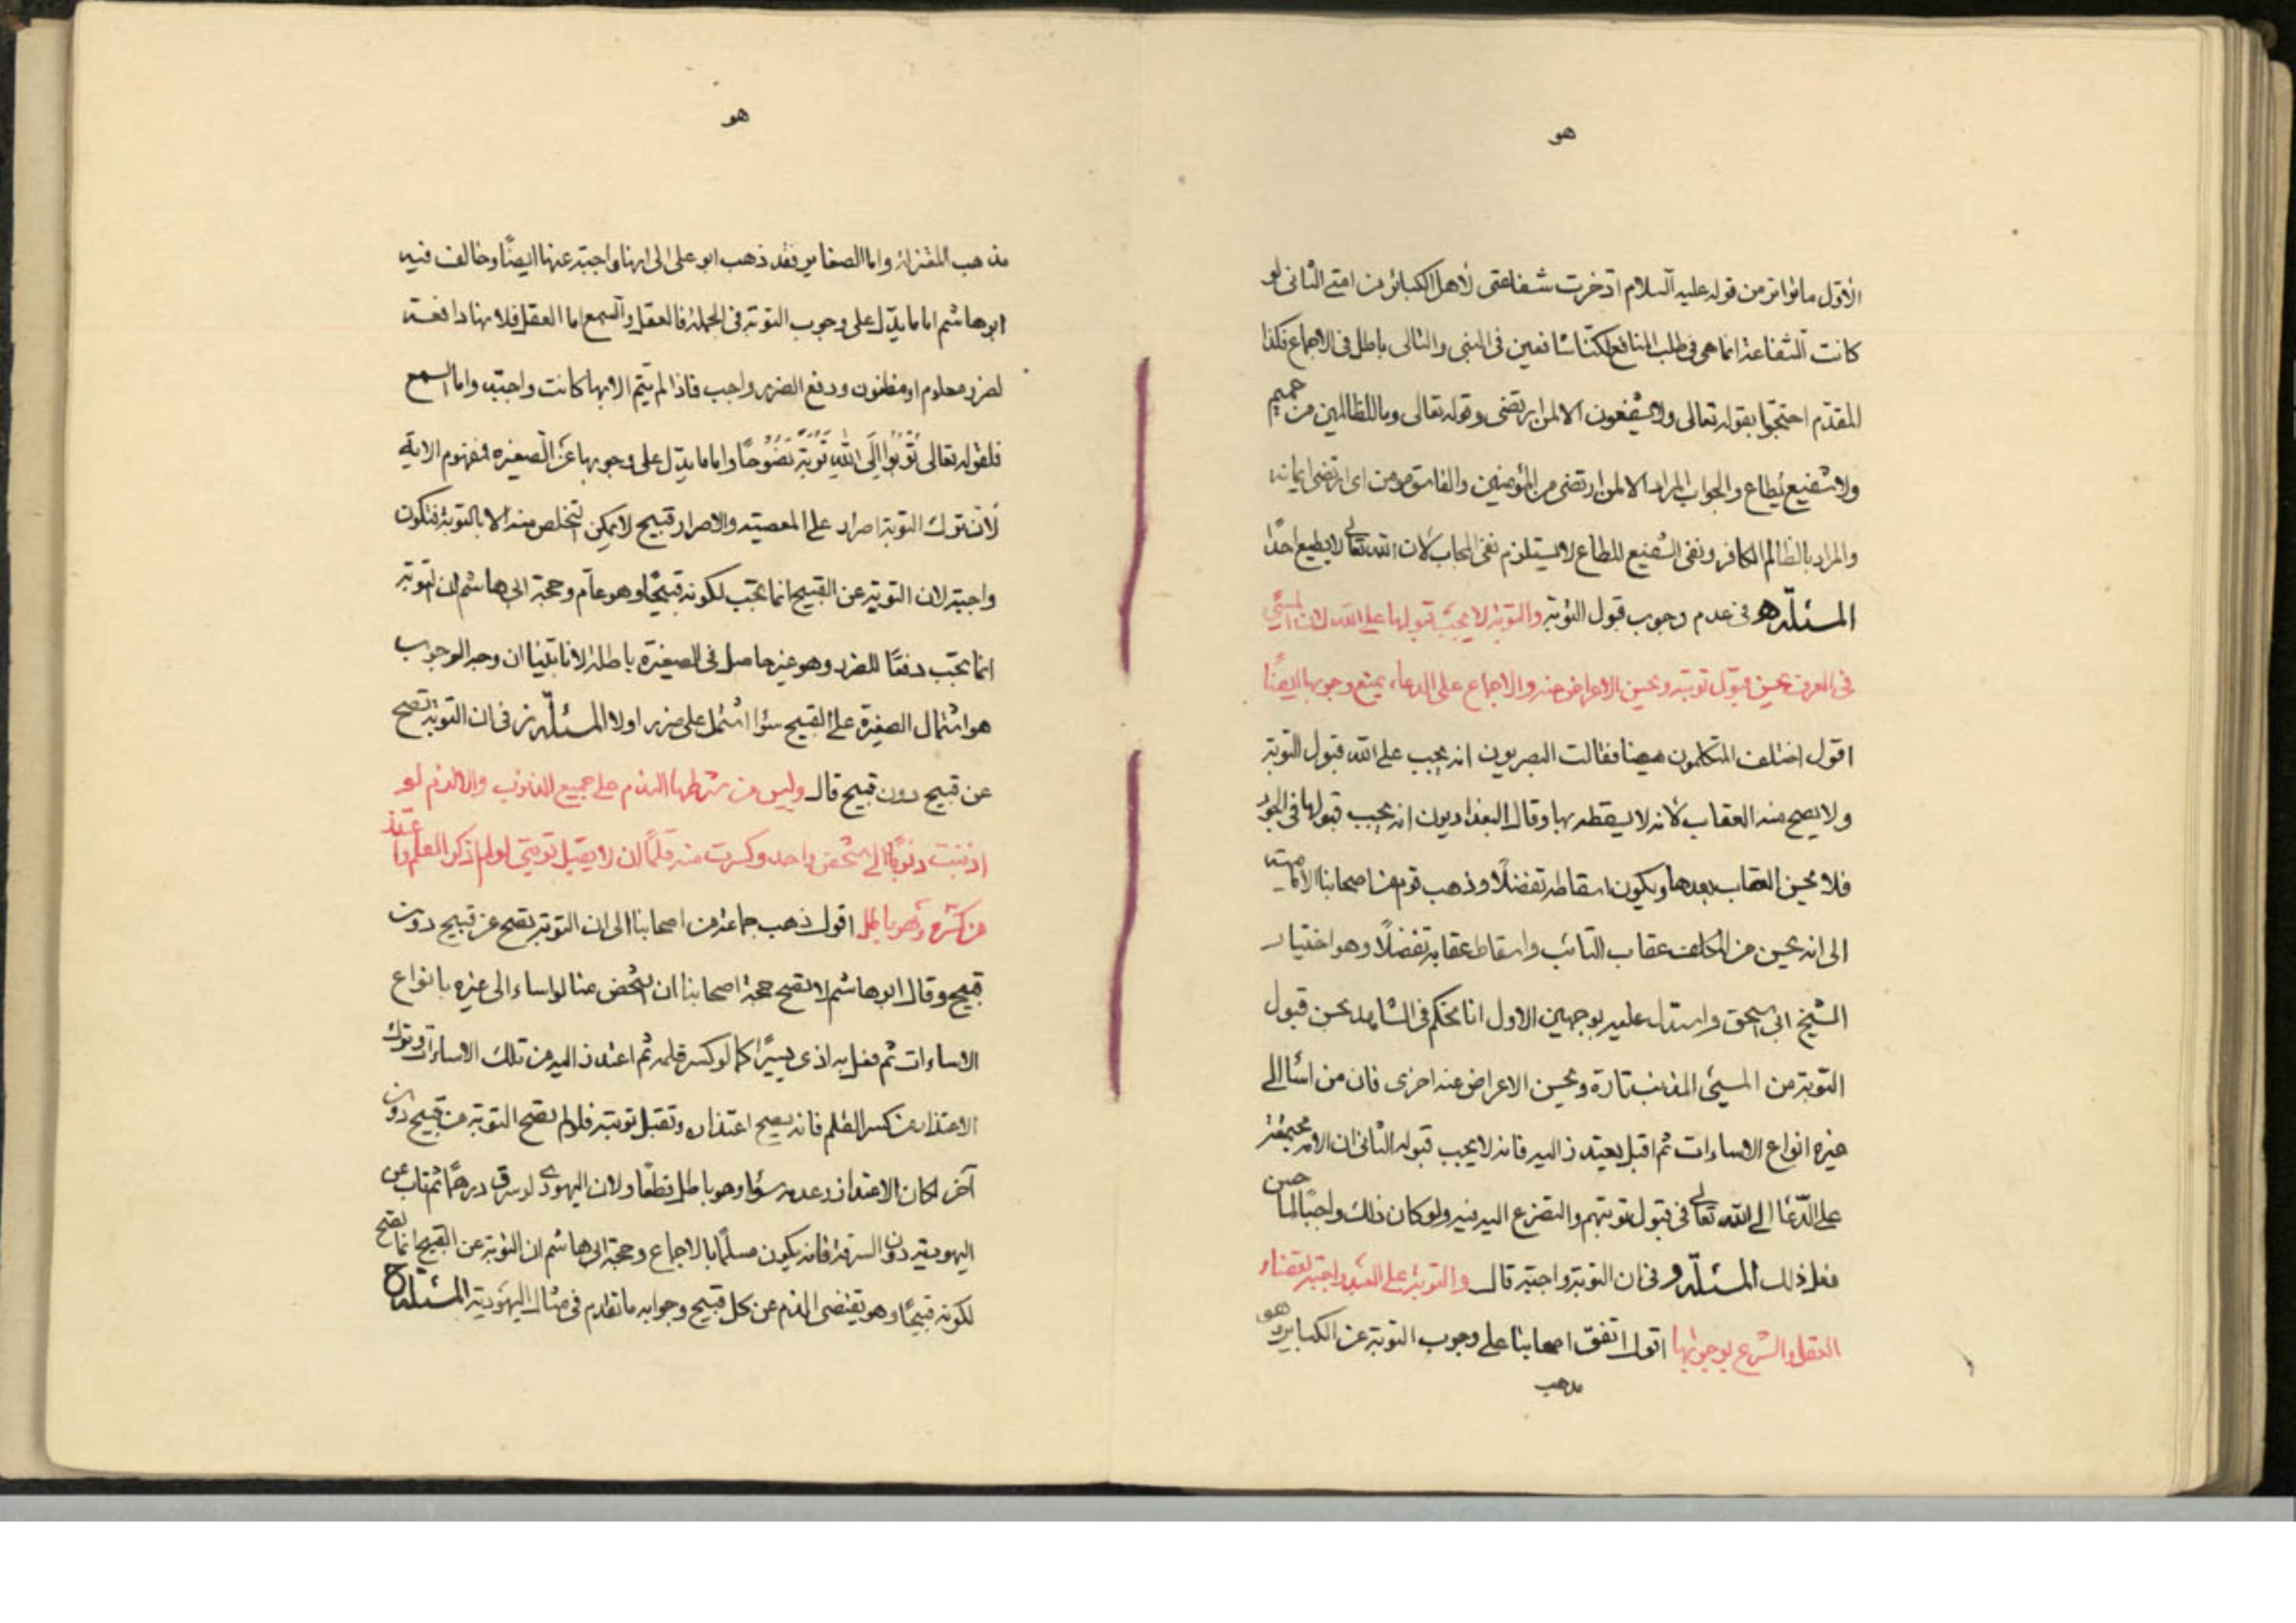 هو
الأول ما تواتر من قوله عليه السلام ادخرت شفاعتى لأهل الكبائر من امتى الثانى لو
كانت الشفاعة انما هى فى طلب المنافع لكنا شافعين فى النبى والتالى باطل فى الاجماع فكذا
المقدم احتجوا بقوله تعالى ولا يشفعون الا لمن ارتضى وقوله تعالى وما للظالمين من حميم
ولا شفيع يطاع والجواب المراد الا لمن ارتضى من المؤمنين والفاسق مومن اى ارتضى ايمانه
والمراد بالظالم الكافر ونفى الشفيع المطاع لا يستلزم نفى المجاب لأن الله تعالى لا يطيع احدا
المسئلة ه فى عدم وجوب قبول التوبة والتوبة لا يجب قبولها على الله لان المسئ
فى العرف يحسن قبول توبته ويحسن الاعراض عنه والاجماع على الدعاء يمنع وجوبها ايضًا
اقول اختلف المتكلمون هيهنا فقالت البصريون انه يجب على الله قبول التوبة
ولا يصح منه العقاب لأنه لا يسقطه بها وقال البغداديون انه يجب قبولها فى الجود
فلا يحسن العقاب بعدها ويكون اسقاطه تفضلًا وذهب قوم من اصحابنا الأمامية
الى انه يحسن من المكلف عقاب التائب واسقاط عقابه تفضلًا وهو اختيار
الشيخ ابى اسحق واستدل عليه بوجهين الاول انا نحكم فى الشاهد بحسن قبول
التوبة من المسيئ المذنب تارة ويحسن الاعراض عنه اخرى فان من اسأ الى
غيره انواع الاساءات ثم اقبل يعتذر اليه فانه لا يجب قبوله الثانى ان الامة مجتمعة
على الدّعا الى الله تعالى فى قبول توبتهم والتضرع اليه فيه ولو كان ذلك واجبًا لما حسن
فعل ذلك المسئلة و فى ان التوبة واجبة قال والتوبة على العبد واجبة لقضاء
العقل والشرع بوجوبها اقول اتفق اصحابنا على وجوب التوبة عن الكبائر وهو
مذهب
هو
مذهب المعتزلة واما الصغاير فقد ذهب ابو على الى انها واجبة عنها ايضًا وخالف فيه
ابو هاشم اما ما يدل على وجوب التوبة فى الجملة فالعقل والسمع اما العقل فلانها دافعة
لضرر معلوم او مظنون ودفع الضرر واجب فاذا لم يتم الا بها كانت واجبة واما السمع
فلقوله تعالى تُوبُوا إِلَى اللهِ تَوْبَةً نَصُوحًا واما ما يدل على وجوبها عن الصغيره فمفهوم الاية
لأن ترك التوبة اصرار على المعصية والاصرار قبيح لا يمكن التخلص منه الا بالتوبة فتكون
واجبة لان التوبة عن القبيح انما يجب لكونه قبيحًا وهو عام وحجة ابى هاشم ان التوبة
انما يجب دفعًا للضرر وهو غير حاصل فى الصغيرة باطلة لانا بينا ان وجه الوجوب
هو اشتمال الصغيرة على القبيح سؤا اشتمل على ضرر اولا المسئلة ز فى ان التوبة تصح
عن قبيح دون قبيح قال وليس من شرطها الندم على جميع الذنوب والا لزم لو
اذنبت ذنوبًا الى شخص واحد وكسرت منه قلمًا ان لا يقبل توبتى لو لم اذكر القلم واعتذر
من كسره وهو باطل اقول ذهب جماعة من اصحابنا الى ان التوبة تصح عن قبيح دون
قبيح وقال ابو هاشم لا تصح حجة اصحابنا ان الشخص منا لو اساء الى غيره بانواع
الاساءات ثم فعل به اذى يسيرًا كما لو كسر قلمه ثم اعتذر اليه من تلك الاساءات وترك
الاعتذار من كسر القلم فانه يصح اعتذاره وتقبل توبته فلو لم تصح التوبة من قبيح دون
آخر لكان الاعتذار وعدمه سؤا وهو باطل قطعًا ولان اليهودى لو سرق درهمًا ثم تاب عن
اليهودية دون السرقة فانه يكون مسلمًا بالاجماع وحجة ابى هاشم ان التوبة عن القبيح انما تصح
لكونه قبيحًا وهو يقتضى الندم عن كل قبيح وجوابه ما تقدم فى مثال اليهودية المسئلة ح